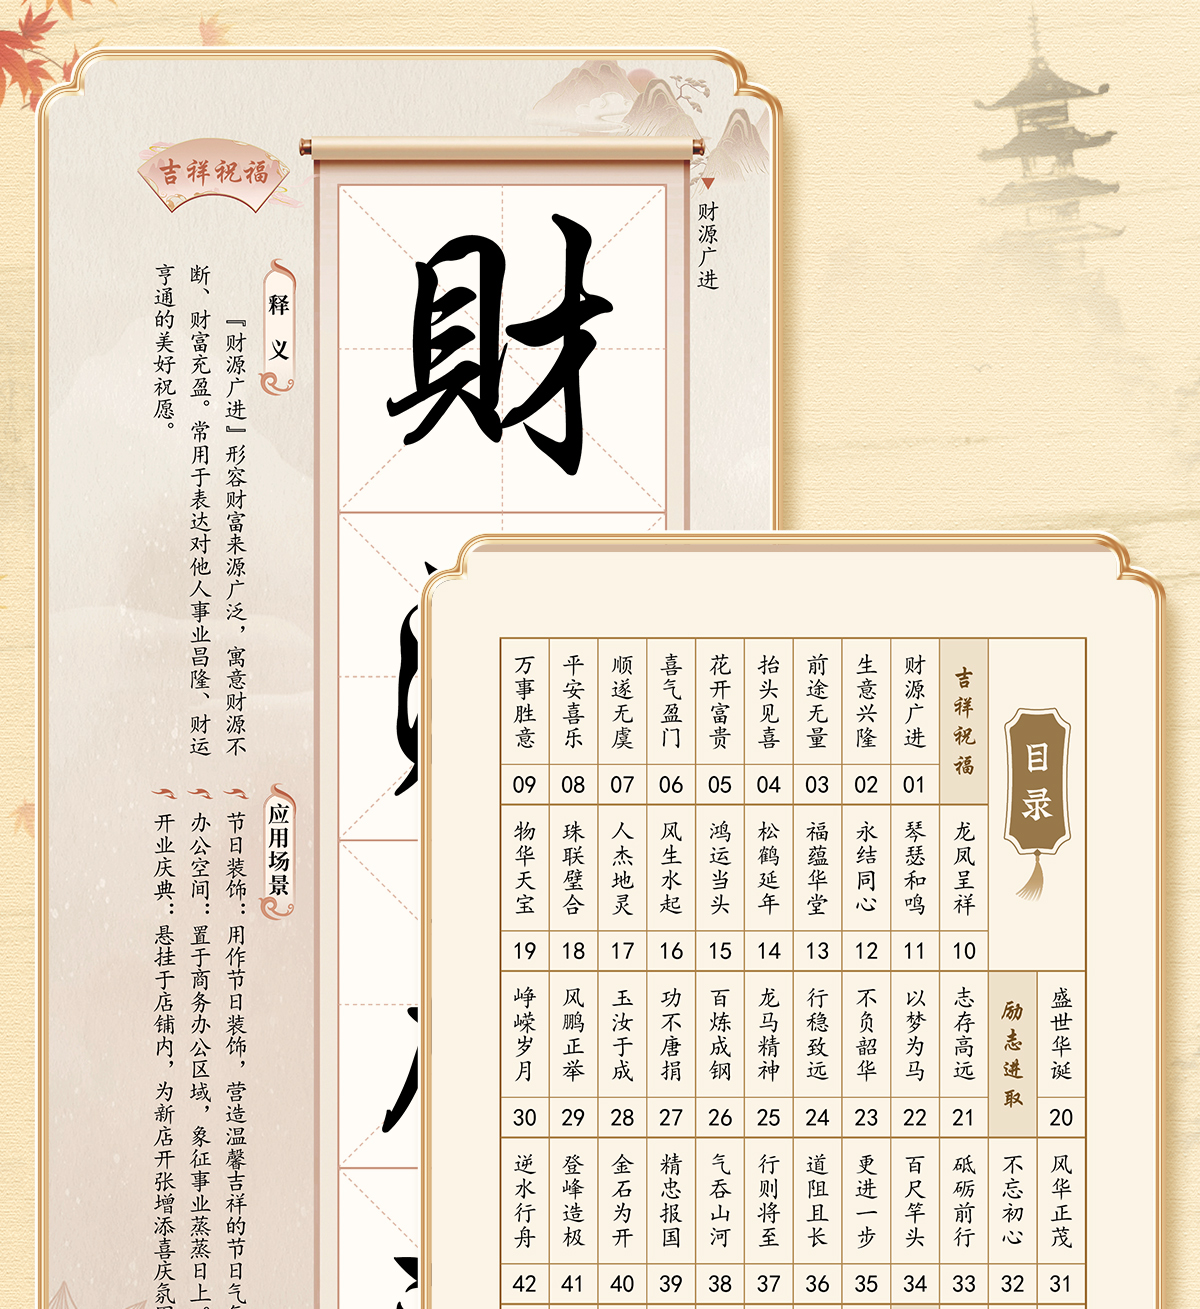 吉祥祝福
财源广进
財
释义
『财源广进』形容财富来源广泛，寓意财源不
断、财富充盈。常用于表达对他人事业昌隆、财运
亨通的美好祝愿。
应用场景
节日装饰：用作节日装饰，营造温馨吉祥的节日气
办公空间：置于商务办公区域，象征事业蒸蒸日上。
开业庆典：悬挂于店铺内，为新店开张增添喜庆氛
目录
吉祥祝福
财源广进 01
生意兴隆 02
前途无量 03
抬头见喜 04
花开富贵 05
喜气盈门 06
顺遂无虞 07
平安喜乐 08
万事胜意 09
龙凤呈祥 10
琴瑟和鸣 11
永结同心 12
福蕴华堂 13
松鹤延年 14
鸿运当头 15
风生水起 16
人杰地灵 17
珠联璧合 18
物华天宝 19
盛世华诞 20
励志进取
志存高远 21
以梦为马 22
不负韶华 23
行稳致远 24
龙马精神 25
百炼成钢 26
功不唐捐 27
玉汝于成 28
风鹏正举 29
峥嵘岁月 30
风华正茂 31
不忘初心 32
砥砺前行 33
百尺竿头 34
更进一步 35
道阻且长 36
行则将至 37
气吞山河 38
精忠报国 39
金石为开 40
登峰造极 41
逆水行舟 42